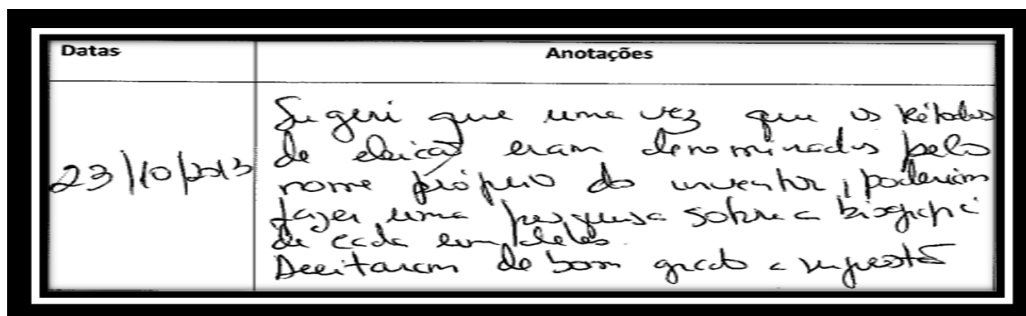 Datas
Anotações
23/10/2013
Sugeri que uma vez que os Métodos
de eleição eram denominados pelo
nome próprio do inventor, poderiam
fazer uma pesquisa sobre a biografia
de cada um deles.
Aceitaram de bom grado a sugestão